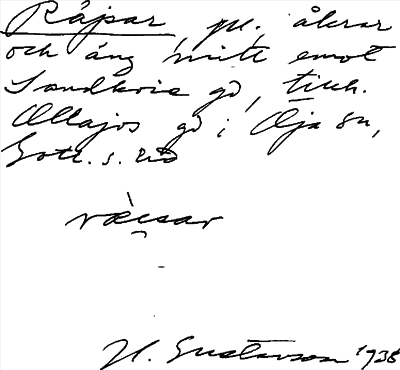 Räpsar, pl., åkrar
och äng mitt emot
Sandkvie gd, tillh.
Ollajos gd i Öja sn,
Gotl. s. rid
H. Gustavson 1938